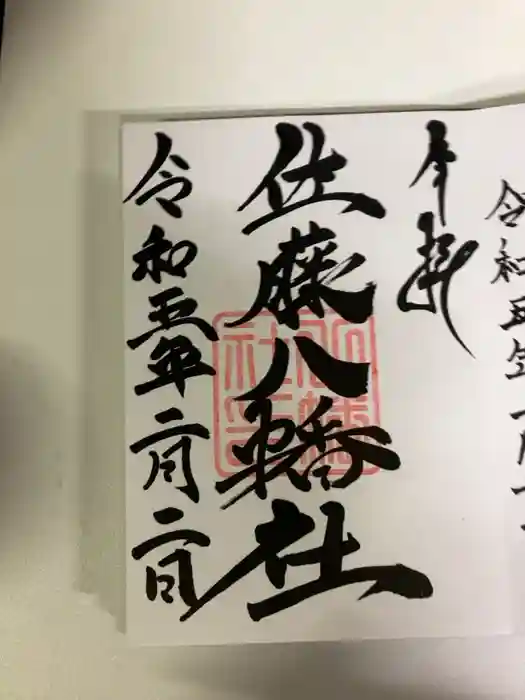 令和五年一月
奉拝
佐藤八幡社
令和五年二月二日